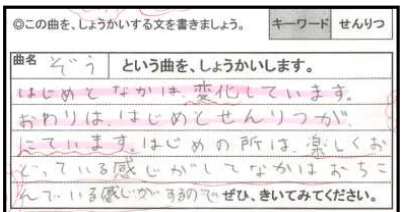 ◎この曲を、しょうかいする文を書きましょう。 キーワード せんりつ
曲名 ぞう という曲を、しょうかいします。
はじめと なかは、変化しています。
おわりは、はじめとせんりつが、
にています。はじめの所は、楽しくお
どっている感じがしてなかはおちこ
んでいる感じがするのでぜひ、きいてみてください。